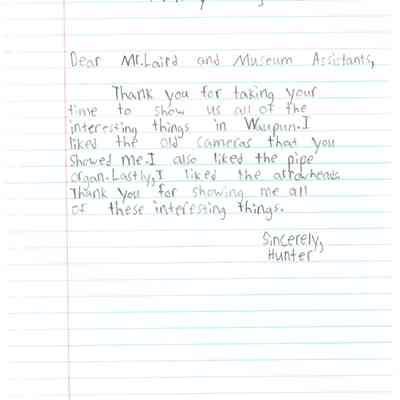 Dear Mr.Laird and Museum Assistants,
Thank you for taking your
time to show us all of the
interesting things in Waupun.I
liked the old cameras that you
showed me.I also liked the pipe
organ.Lastly,I liked the arrowheads.
Thank you for showing me all
of these interesting things.
Sincerely,
Hunter